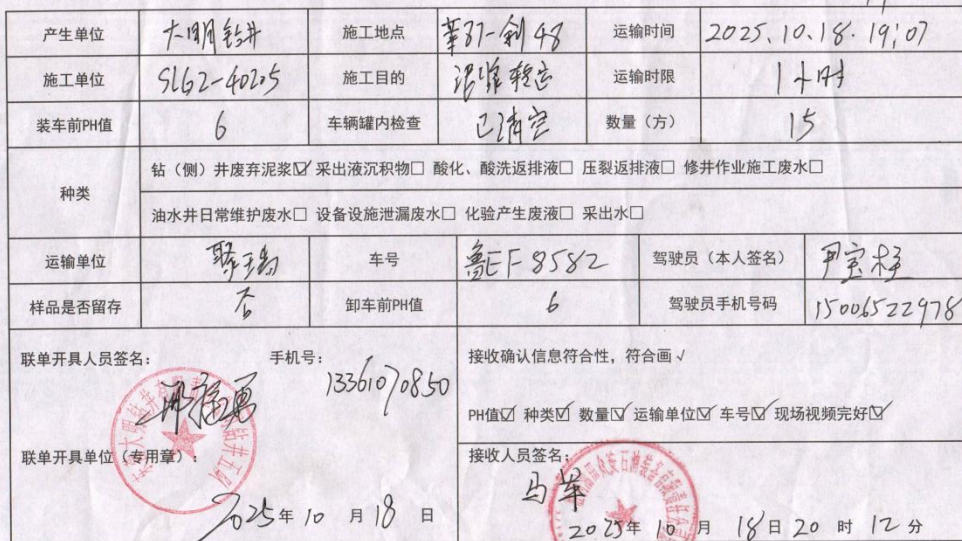 产生单位 大明钻井 施工地点 莘37-斜48 运输时间 2025.10.18.19:07
施工单位 SLG2-40205 施工目的 泥浆转运 运输时限 1小时
装车前PH值 6 车辆罐内检查 已清空 数量（方） 15
种类 钻（侧）井废弃泥浆☑ 采出液沉积物□ 酸化、酸洗返排液□ 压裂返排液□ 修井作业施工废水□
油水井日常维护废水□ 设备设施泄漏废水□ 化验产生废液□ 采出水□
运输单位 车号 鲁EF8582 驾驶员（本人签名） 尹宝祥
样品是否留存 否 卸车前PH值 6 驾驶员手机号码 15006522978
联单开具人员签名： 手机号： 13361070850
接收确认信息符合性，符合画√
PH值☑ 种类☑ 数量☑ 运输单位☑ 车号☑ 现场视频完好☑
联单开具单位（专用章）：
2025年10月18日
接收人员签名：
马军
2025年10月18日20时12分